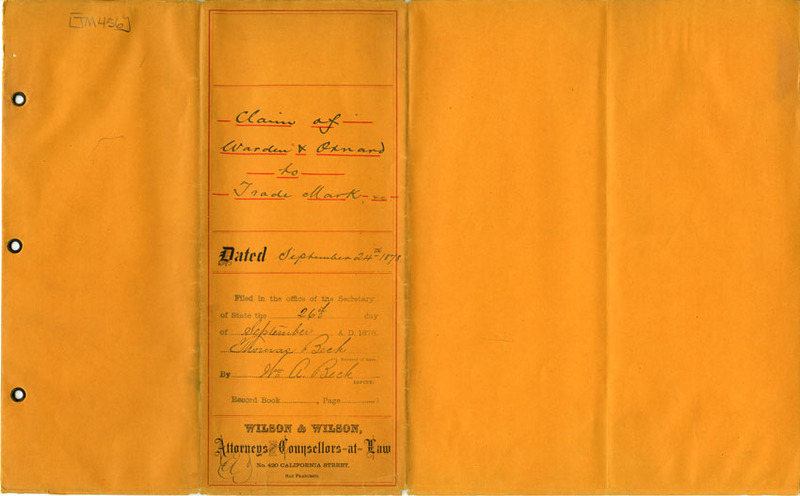 [TM456]
Claim of
Warden & Oxnard
to
Trade Mark, &c
Dated September 24th 1878
Filed in the office of the Secretary
of State the 26th day
of September A. D. 1878.
Thomas Beck
Secretary of State.
By Wm A. Beck
DEPUTY.
Record Book , Page
WILSON & WILSON,
Attorneys & Counsellors-at-Law
No. 420 CALIFORNIA STREET,
SAN FRANCISCO.